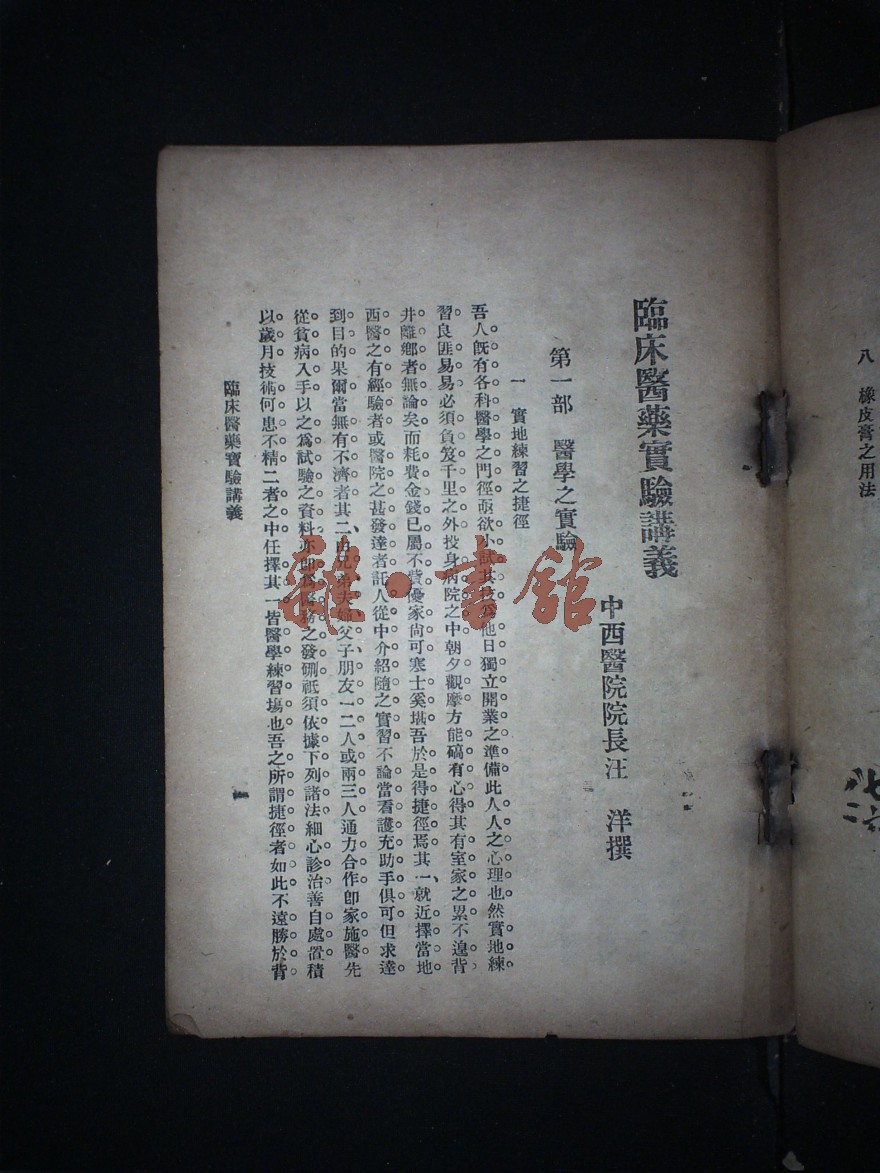 八　橡皮膏之用法
臨床醫藥實驗講義
中西醫院院長汪　洋撰
第一部　醫學之實驗
一　實地練習之捷徑
吾人既有各科醫學之門徑亟欲小試其技為他日獨立開業之準備此人人之心理也然實地練
習良匪易易必須負笈千里之外投身病院之中朝夕觀摩方能碻有心得其有室家之累不遑背
井離鄉者無論矣而耗費金錢已屬不貲優家尙可寒士奚堪吾於是得捷徑焉其一、就近擇當地
西醫之有經驗者或醫院之甚發達者託人從中介紹隨之實習不論當看護充助手俱可但求達
到目的果爾當無有不濟者其二、由兄弟夫婦父子朋友一二人或兩三人通力合作卽家施醫先
從貧病入手以之爲試驗之資料亦卽爲醫務之發硎祇須依據下列諸法細心診治善自處置積
以歲月技術何患不精二者之中任擇其一皆醫學練習塲也吾之所謂捷徑者如此不遠勝於背
臨床醫藥實驗講義
雜·書館